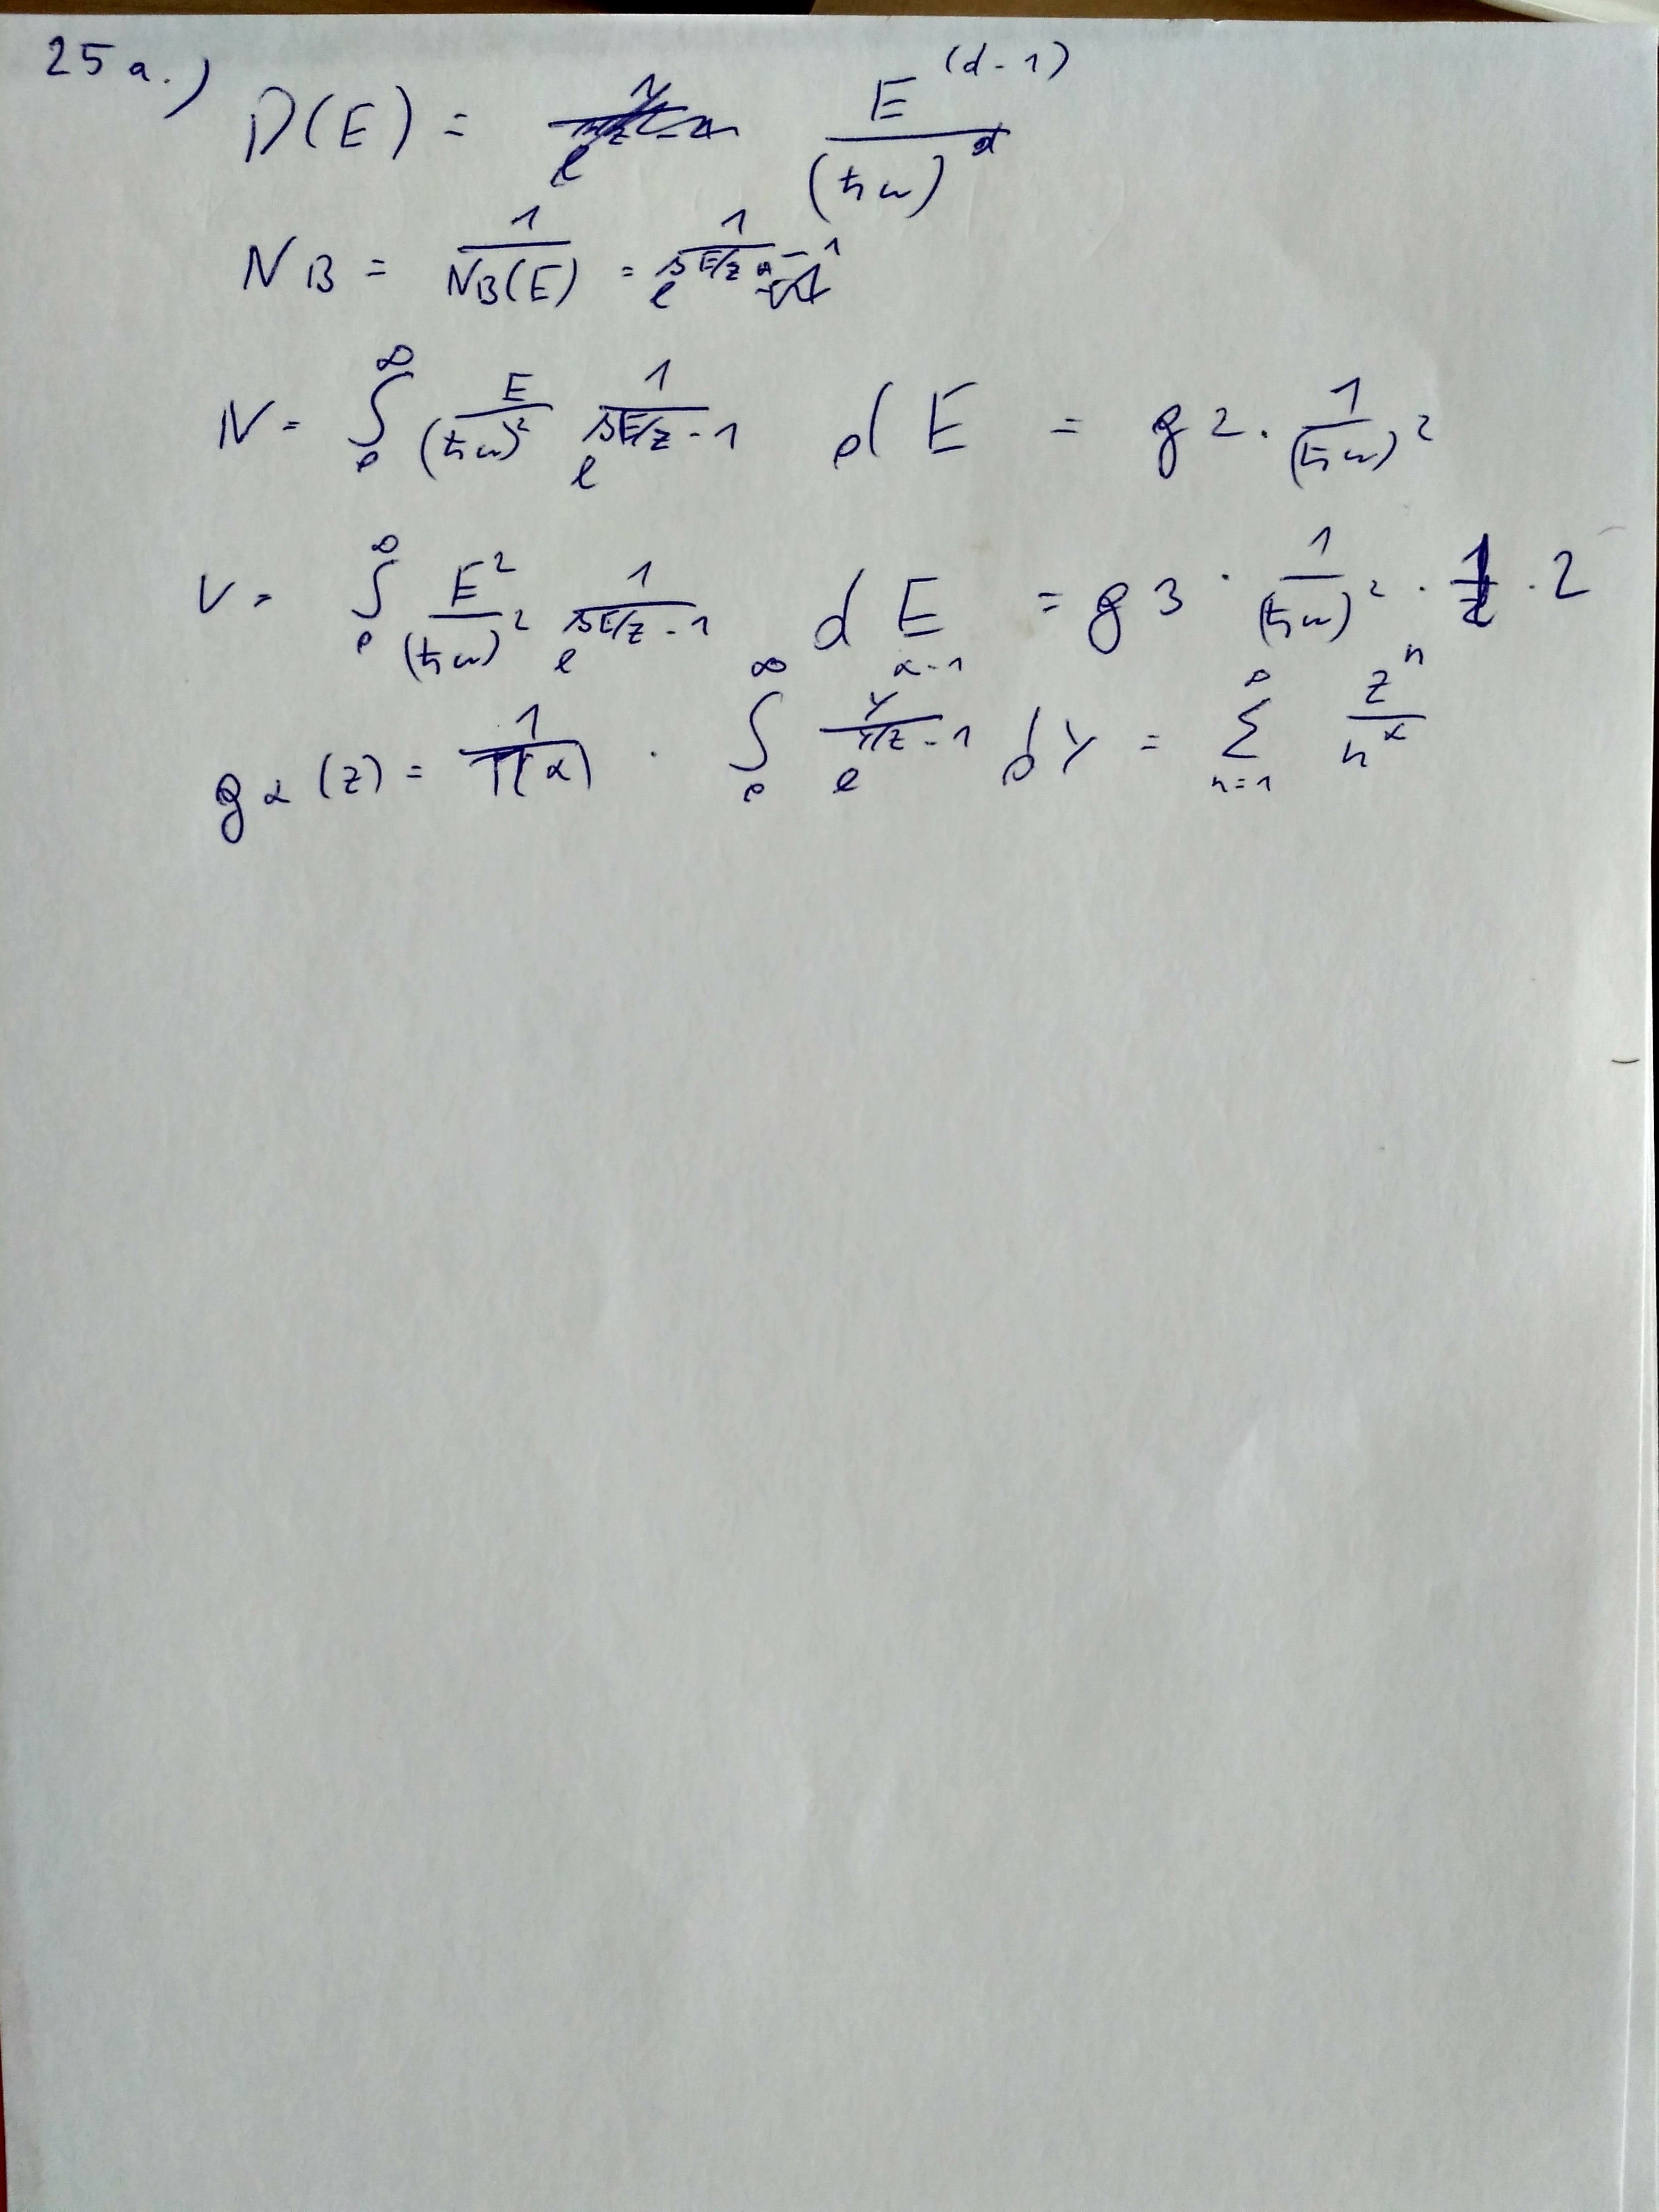 25 a.)
D(E) = E^(d-1) / (ħω)^d
N_B = 1 / N_B(E) = 1 / e^βE/z - 1
N = ∫_0^∞ E / (ħω)^2 1 / e^βE/z - 1 dE = g_2 · 1 / (ħω)^2
V = ∫_0^∞ E^2 / (ħω)^2 1 / e^βE/z - 1 dE = g_3 · 1 / (ħω)^2 · 2
g_α (z) = 1 / Γ(α) · ∫_0^∞ y^α-1 / e^y/z - 1 dy = Σ_n=1^∞ z^n / n^α